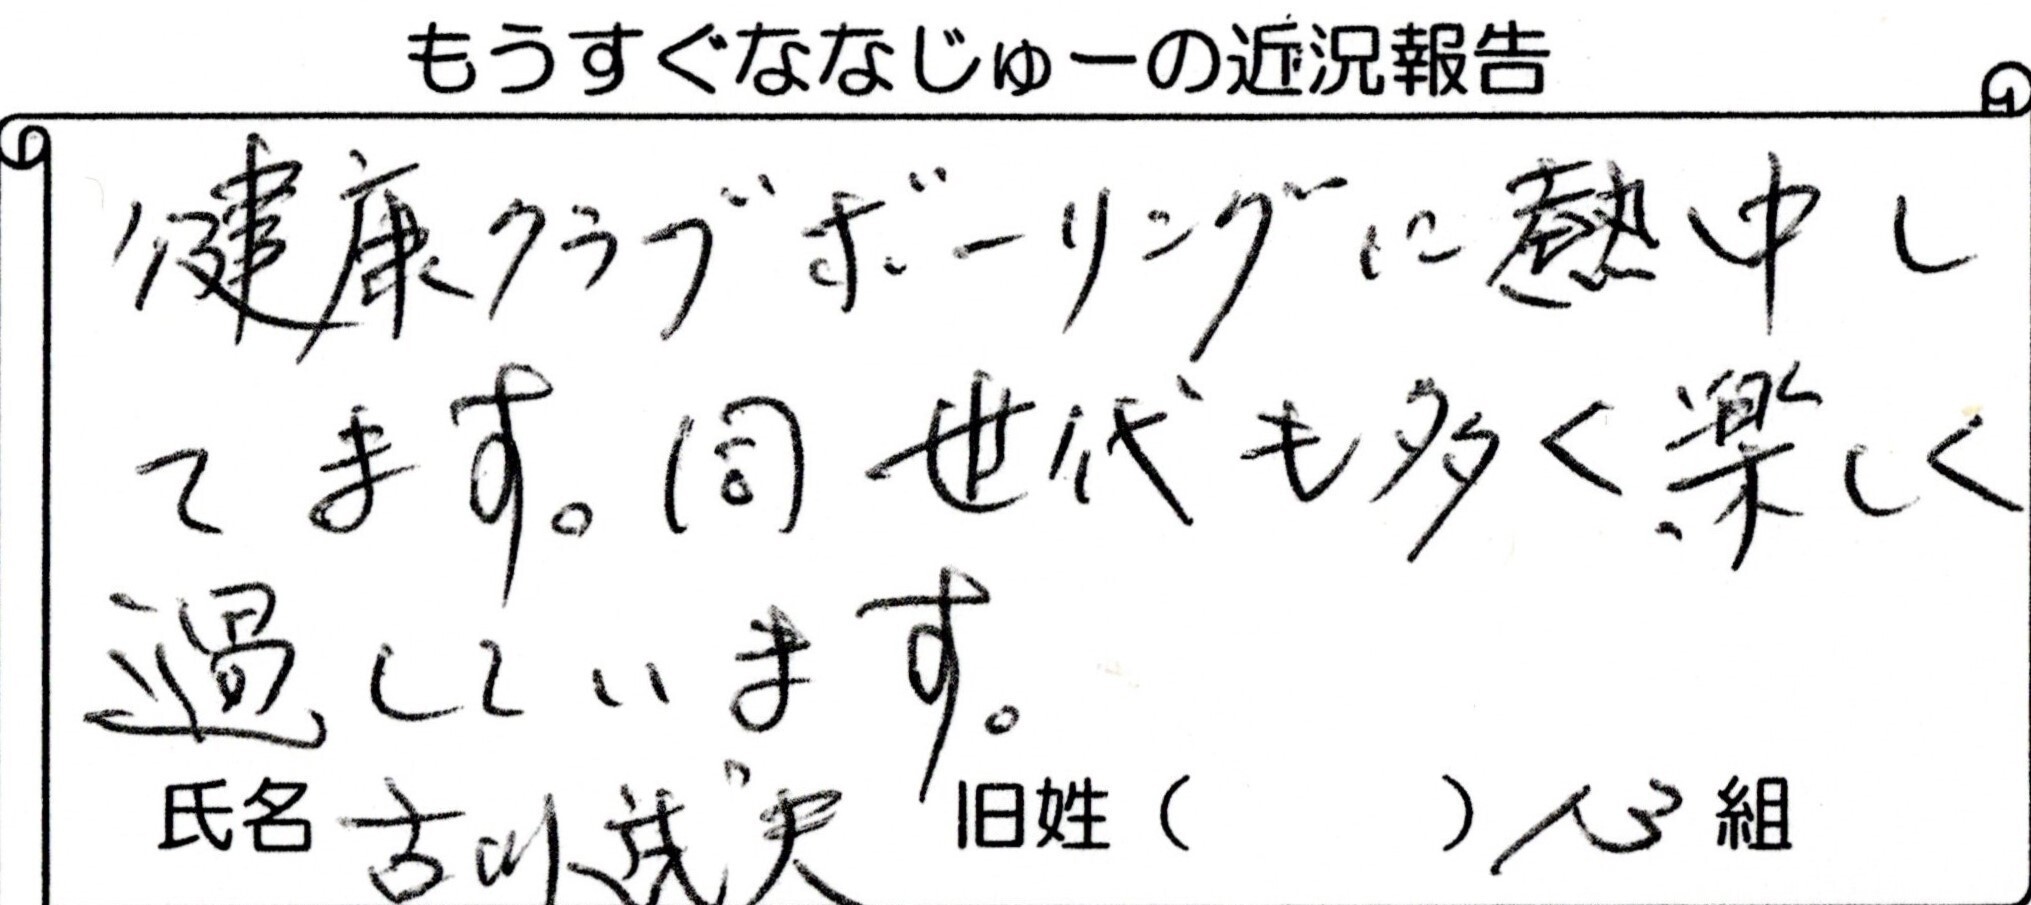 もうすぐななじゅーの近況報告
健康クラブボーリングに熱中し
てます。同世代も多く楽しく
過しています。
氏名 古川茂夫 旧姓( ) 組